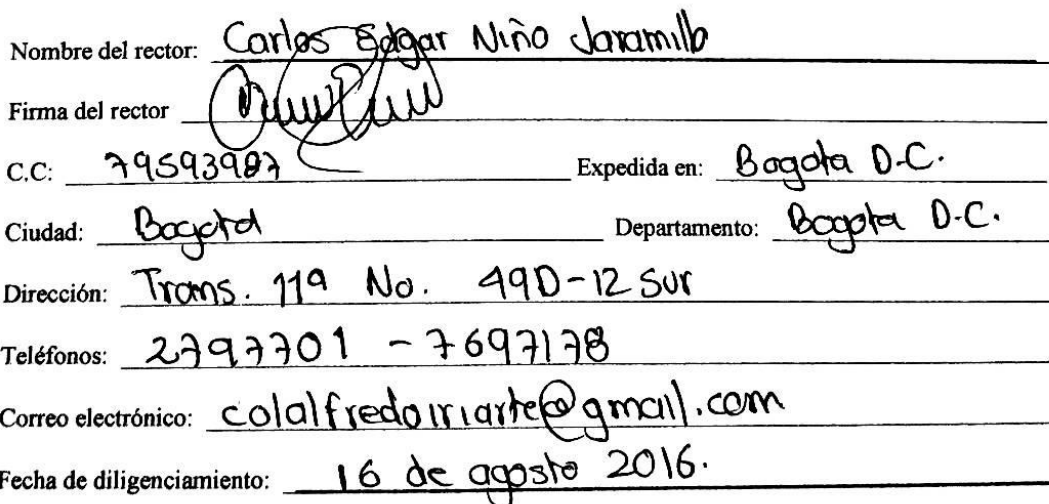 Nombre del rector: Carlos Edgar Niño Jaramillo
Firma del rector
C.C: 79593987 Expedida en: Bogota D.C.
Ciudad: Bogotá Departamento: Bogota D.C.
Dirección: Trans. 11a No. 49D-12 Sur
Teléfonos: 2797701 - 7697178
Correo electrónico: colalfredoiriarte@gmail.com
Fecha de diligenciamiento: 16 de agosto 2016.